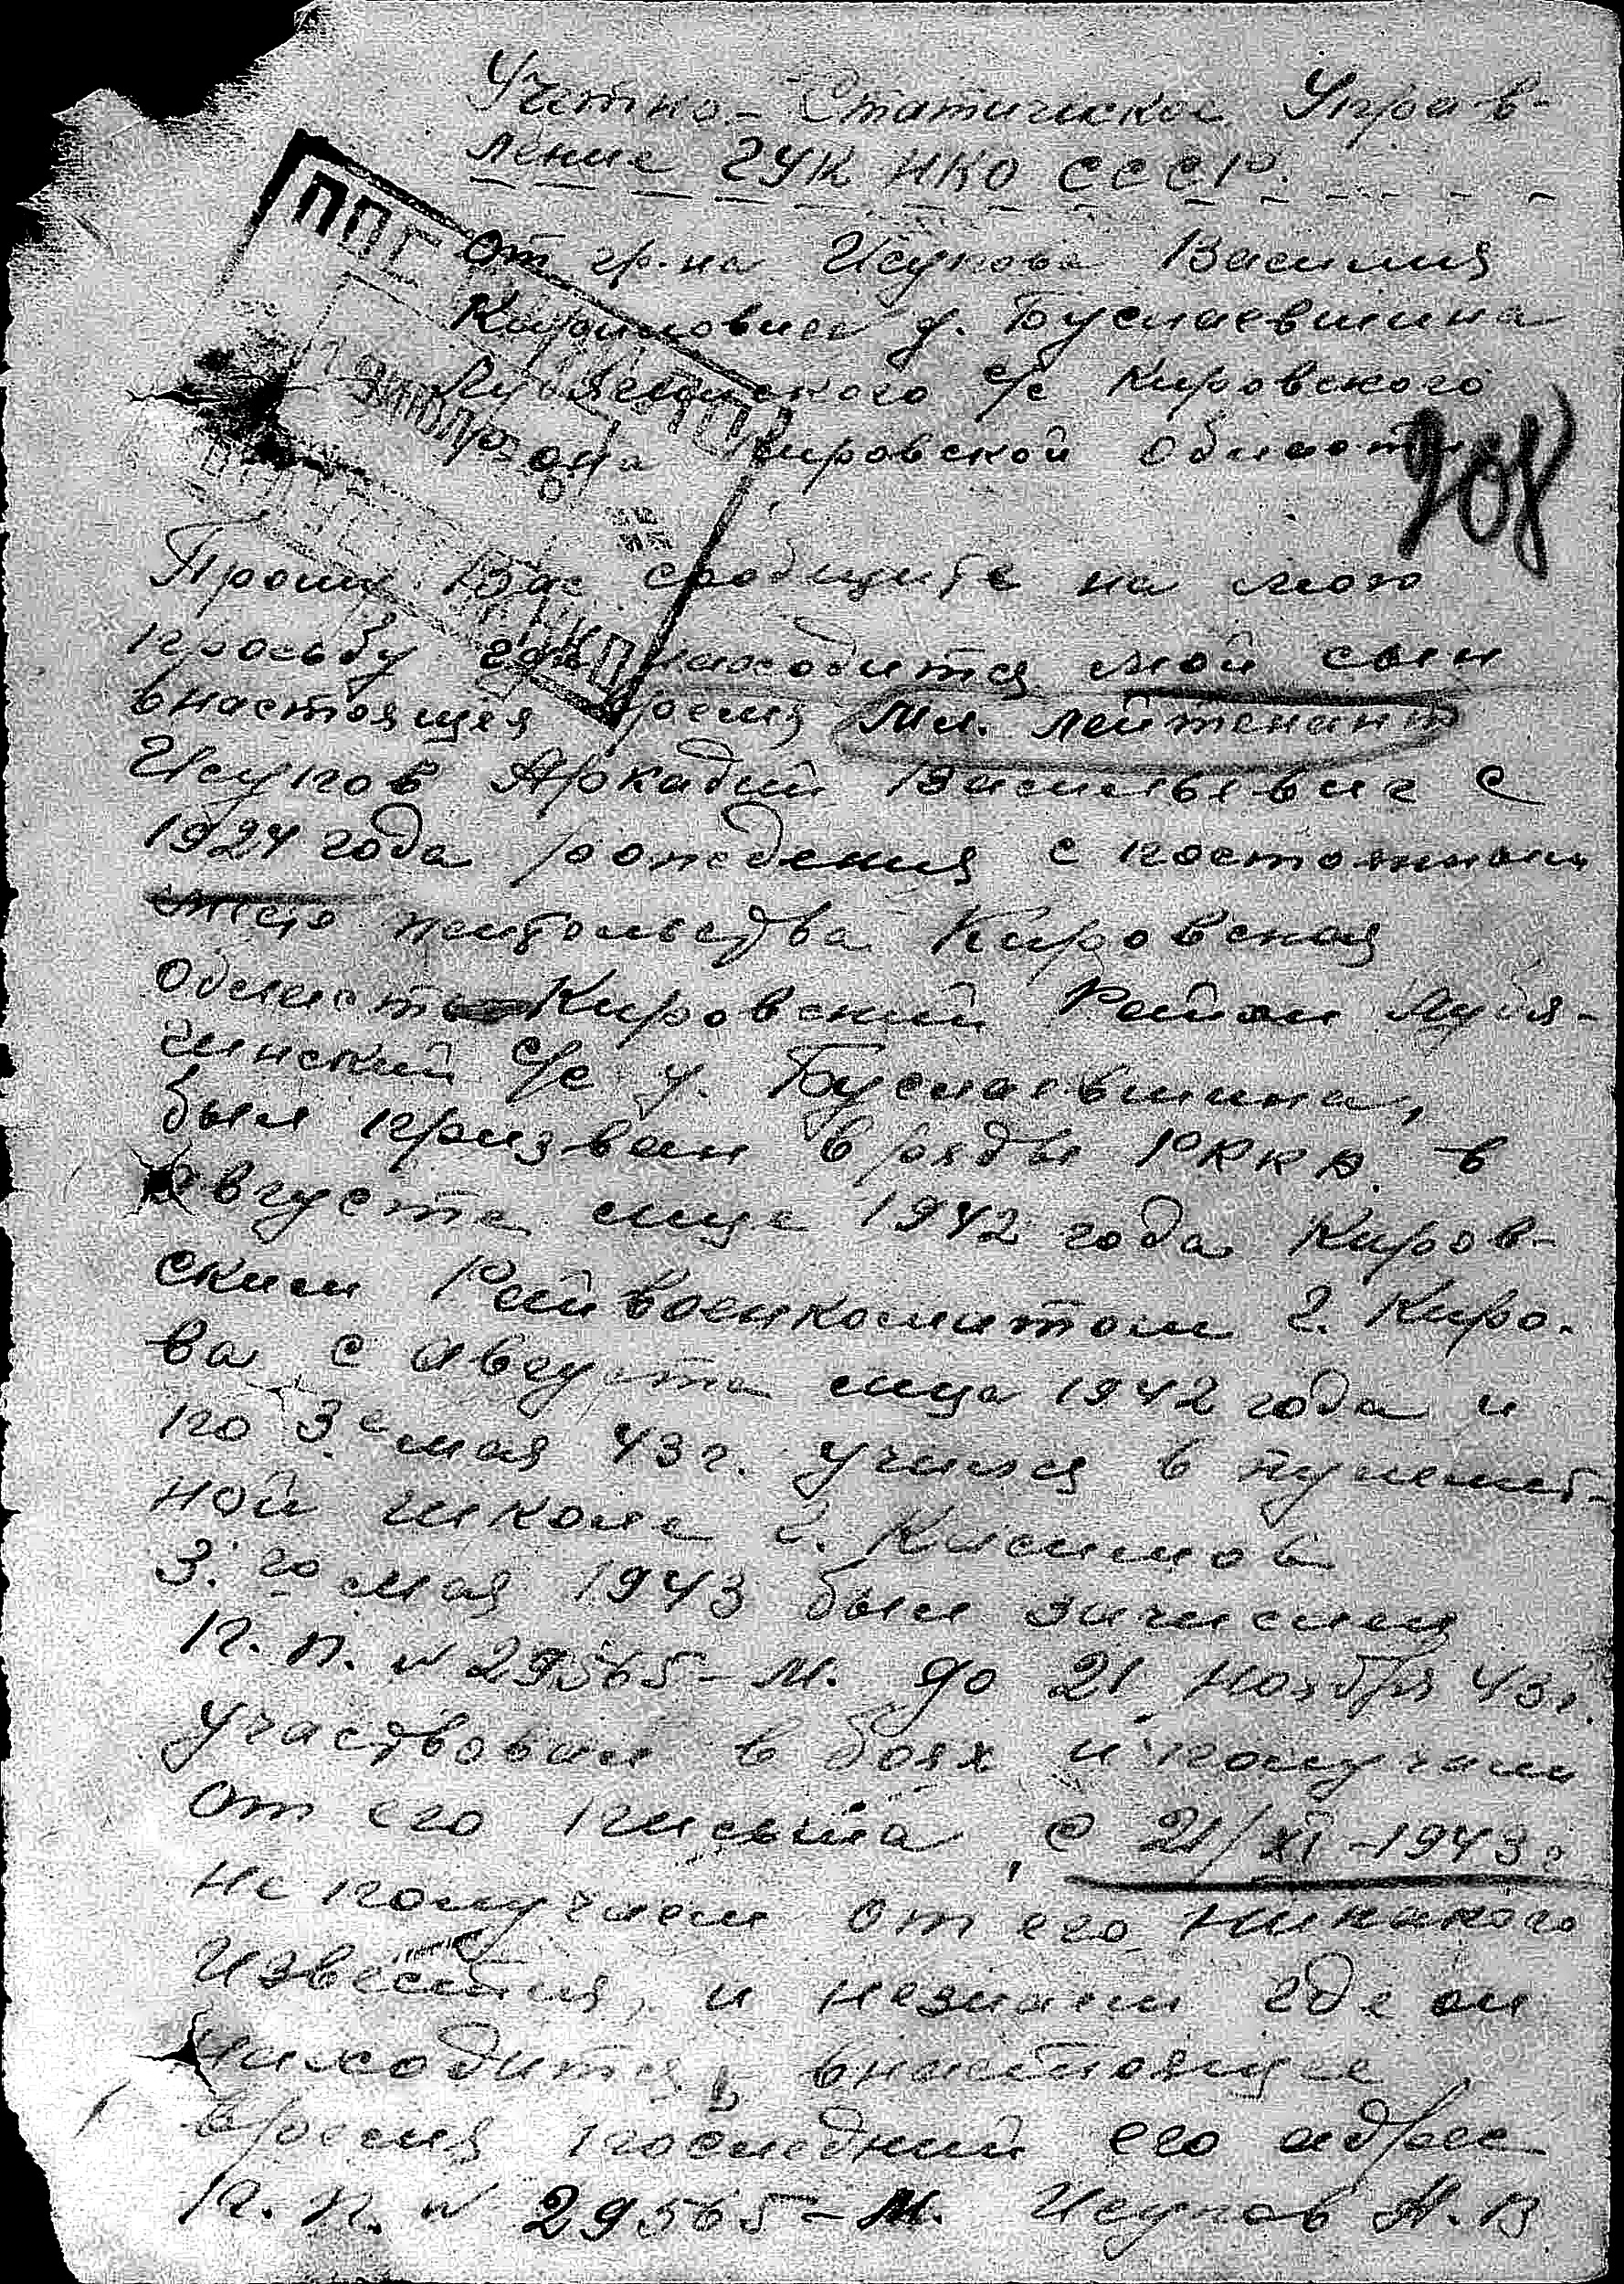 Учетно-Статическое Управ-
ление ГУК НКО СССР.
ППГ
От гр-на Исупова Василия
Карповича д. Буслаевшина
с/с Кировского
она Кировской области
208
Прошу Вас сообщите на мою
просьбу где находится мой сын
внастоящея время Мл. лейтенант
Исупов Аркадий Васильевич с
1924 года рождения с постоянным
жительства Кировская
Область Кировский Район Лубя-
гинский с/с д. Буслаевшина,
был призван в ряды РККА. в
августе м-це 1942 года Киров-
ским Райвоенкоматом г. Киро-
ва с августа м-ца 1942 года и
по 3е мая 43 г. учился в пулемет-
ной школе г. Касимов
3.го мая 1943 был зачислен
П. П. № 29565-М. до 21 ноября 43 г.
участвовал в боях и получали
от его письма, с 21/XI-1943 г
не получаем от его никакого
известия, и незнаем где он
находится, внастоящее
время последний его адрес
П. П. № 29565-М. Исупов А. В